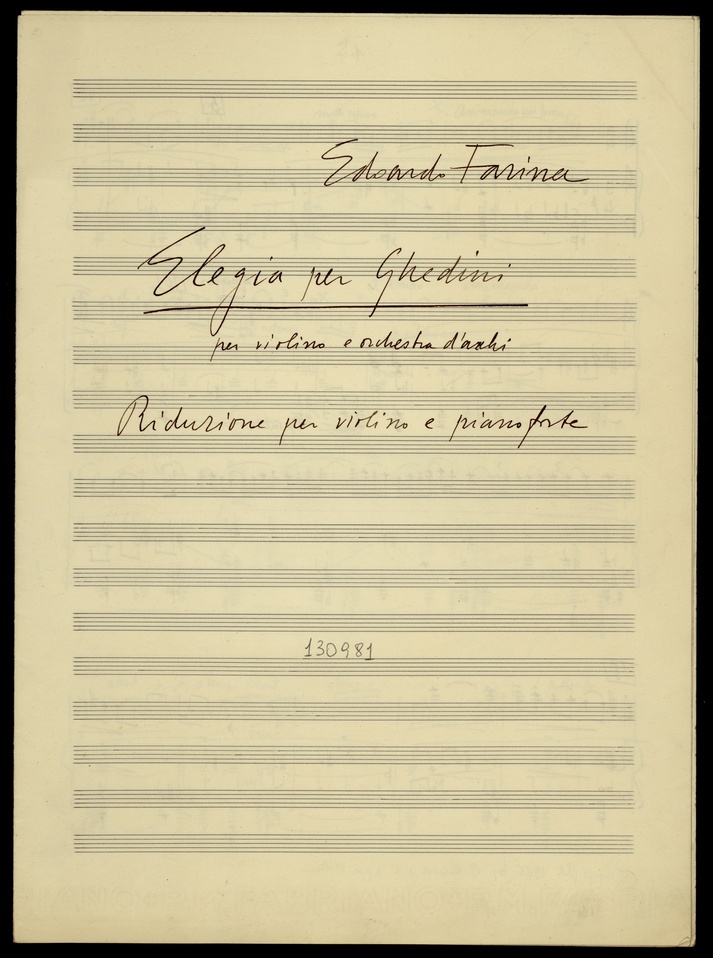 Edoardo Farina
Elegia per Ghedini
per violino e orchestra d'archi
Riduzione per violino e pianoforte
130981